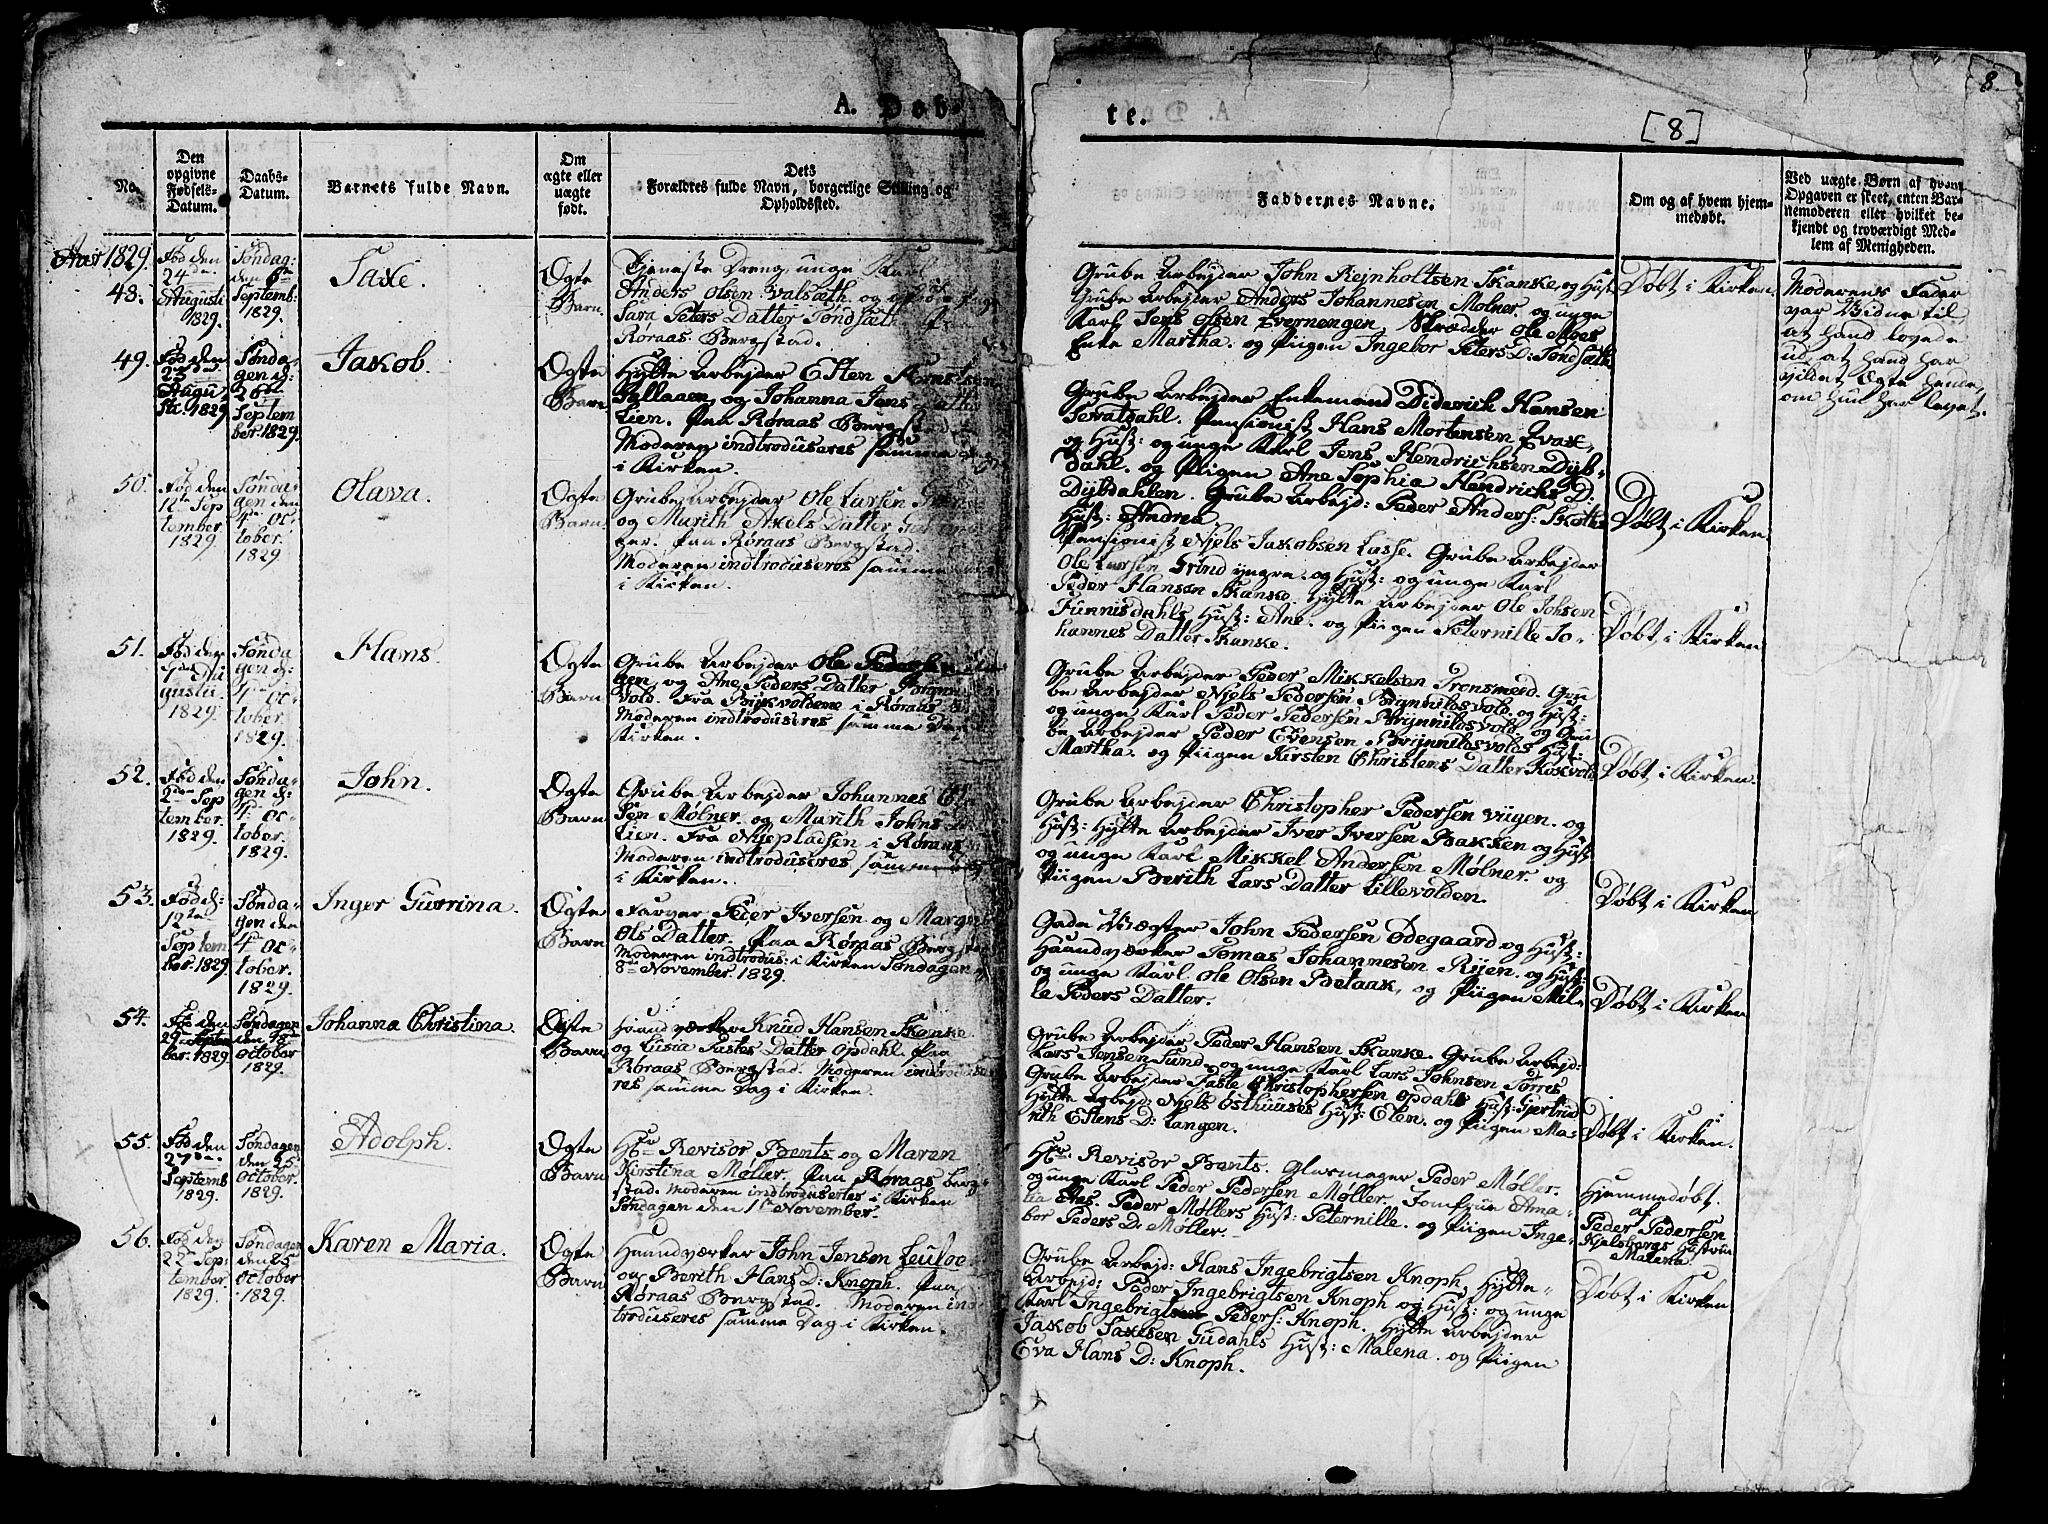 A. Døb-
te.
[8]
8.
No.
Den
opgivne
Fødsels-
Datum.
Daabs-
Datum.
Barnets fulde Navn.
Om
ægte eller
uægte
født.
Dets
Forældres fulde Navn, borgerlige Stilling og
Opholdssted.
Faddernes Navne.
Om og af hvem hjem-
medøbt.
Ved uægte Børn af hvem
Opgaven er skeet, enten Bar-
nemoderen eller hvilket be-
kjendt og troværdigt Med-
lem af Menigheden.
Aar 1829.
48.
Fød den
24de
Augusti
1829.
Søndag:
den 6te
Septemb:
1829.
Saxe
Ægte
Barn
Tjeneste Dreng, unge Karl
Anders Olsen Valsæth og
Sara Peters Datter Tøndsæth
Røraas Bergstad.
Grube Arbejder John Rejnholtsen Skanke, og Hust:
Grube Arbejder Anders Johannesen Mølner. og unge
Karl Jens Olsen Evernengen, Skrædder Ole Moes
Enke Martha. og Piigen Ingebor Peters D: Tøndsæth
Døbt i Kirken.
Moderens Fader
var Vidne til
at hand lovede
ud, at hand har
vildet Ægte hende,
om hun har levet.
49.
Fød den
23de
Augu,,
sti. 1829.
Sønda
gen d:
20de
Septem
ber. 1829.
Jakob.
Ægte
Barn
Hytte Arbejder Esten Arntsen
Sallaaen, og Johanna Jens Datter
Lien. Paa Røraas Bergstad
Moderen indtroduseres samme Dag
i Kirken.
Grube Arbejder Enkemand Diderich Hansen
Sevatdahl. Pensionist Hans Mortensen Evax,
og Hust: og unge Karl Jens Hendrichsen Dyb-
dahl. og Piigen Ane Sophia Hendrichs D:
Dybdahlen. Grube Arbejd: Peder Anders: Skotte
Hust: Andrea.
Døbt i Kirken.
50.
Fød den
12te Sep
tember.
1829.
Sønda-
gen den
4de Oc-
tober.
1829
Olava.
Ægte
Barn.
Grube Arbejder Ole Larsen
og Marith Axels Datter
ger. Paa Røraas Bergstad.
Moderen indtroduseres samme
i Kirken.
Pensionist Njels Jakobsen Lasse. Grube Arbejder
Ole Larsen Grind yngre. og Hust: og unge Karl
Peder Hansen Skanke. Hytte Arbejder Ole Johsen
Finnisdahls Hust: Ane. og Piigen Peternille Jo-
hannes Datter Skanke.
Døbt i Kirken
51.
Fød den
1de Au
gustii.
1829.
Sønda
gen d:
4de Oc-
tober.
1829.
Hans.
Ægte
Barn
Grube Arbejder Ole Pedersen
gen, og Ane Peders Datter
vold. Fra Bykvoldene i Røraas
Moderen indtroduseres samme Dag
Kirken.
Grube Arbejder Peder Mikkelsen Trønsmoed. Gru
be Arbejder Njels Pedersen Brynnilosvold. og Hust:
og unge Karl Peder Pedersen Brynnilosvold. og Gru
be Arbejder Peder Evensen Brynnilosvolds Hust:
Martha. og Piigen Kirsten Christens Datter Koskvold
Døbt i Kirken.
52.
Fød den
2den Sep
tember.
1829.
Sønda-
gen d:
4de Oc-
tober.
1829.
John.
Ægte
Barn
Grube Arbejder Johannes
sen Mølner. og Marith Johns
Lien. Fra Nyepladsen i Røraas
Moderen indtroduseres samme
i Kirken.
Grube Arbejder Christopher Pedersen Viigen. og
Hust: Hytte Arbejder Iver Iversen Bakken og Hust
og unge Karl Mikkel Andersen Mølner. og
Piigen Berith Lars Datter Lillevolden.
Døbt i Kirken
53.
Fød d:
12te
Septem
ber. 1829
Sønda-
gen den
4de Oc-
tober.
1829.
Inger Gurrina.
Ægte
Barn
Farger Peter Iversen og
Ols Datter. Paa Røraas Bergstad
Moderen indtrodus: i Kirken Søndagen
8de November 1829.
Gade Vægter John Pedersen Ødegaard og Hust:
Haandværker Tomas Johannesen Ryen. og Hust:
og unge Karl Ole Olsen Betaak, og Piigen Mil-
le Peders Datter.
Døbt i Kirken
54.
Fød den
29de Septem
ber. 1829
Søndagen
den 18de
October
1829.
Johanna Christina
Ægte
Barn
Haandværker Knud Hansen Skanke
og Lusia Fastes Datter Opdahl. Paa
Røraas Bergstad. Moderen indtroduse-
res samme Dag i Kirken.
Grube Arbejder Peder Hansen Skanke. Grube Arbejd:
Lars Jensen Sund, og unge Karl Lars Johnsen Torres
Grube Arbejder Faste Christophersen Opdahls Hust: Gjertrud
Hytte Arbejd: Njels Østhuuses Hust: Elen. og Piigen Ma-
rith Estens D: Langen.
Døbt i Kirken.
55.
Fød den
27de
Septemb
1829.
Søndagen
den 25
October.
1829.
Adolph.
Ægte
Barn
Hr. Revisor Bents og Maren
Kirstina Møller. Paa Røraas berg-
stad. Moderen indtroduseres i Kirken
Søndagen den 1ste November.
Hr. Revisor Bents. Glasmager Peder Møller.
og unge Karl Peder Pedersen Møller. Jomfrue Ama-
lia Aas. Peder Møllers Hust: Peternille. og Piigen Inge-
bor Peders D: Møller.
Hjemmedøbt.
af
Peder Pedersen
Kjelsbergs Hustrue
Malena.
56.
Fød den
22de Sep
tember
1829.
Søndagen
den 25
October
1829.
Karen Maria.
Ægte
Barn
Haandværker John Jensen
og Berith Hans D: Knoph. Paa
Røraas Bergstad. Moderen ind-
troduseres samme Dag i Kirken.
Grube Arbejd: Hans Ingebrigtsen Knoph, Hytte-
Arbejd: Peder Ingebrigtsen Knoph og Hust: og unge
Karl Ingebrigtsen Peders: Knoph. Hytte Arbejder
Jakob Saxesen Gudahls Hust: Malena. og Piigen
Eva Hans D: Knoph.
Døbt i Kirken